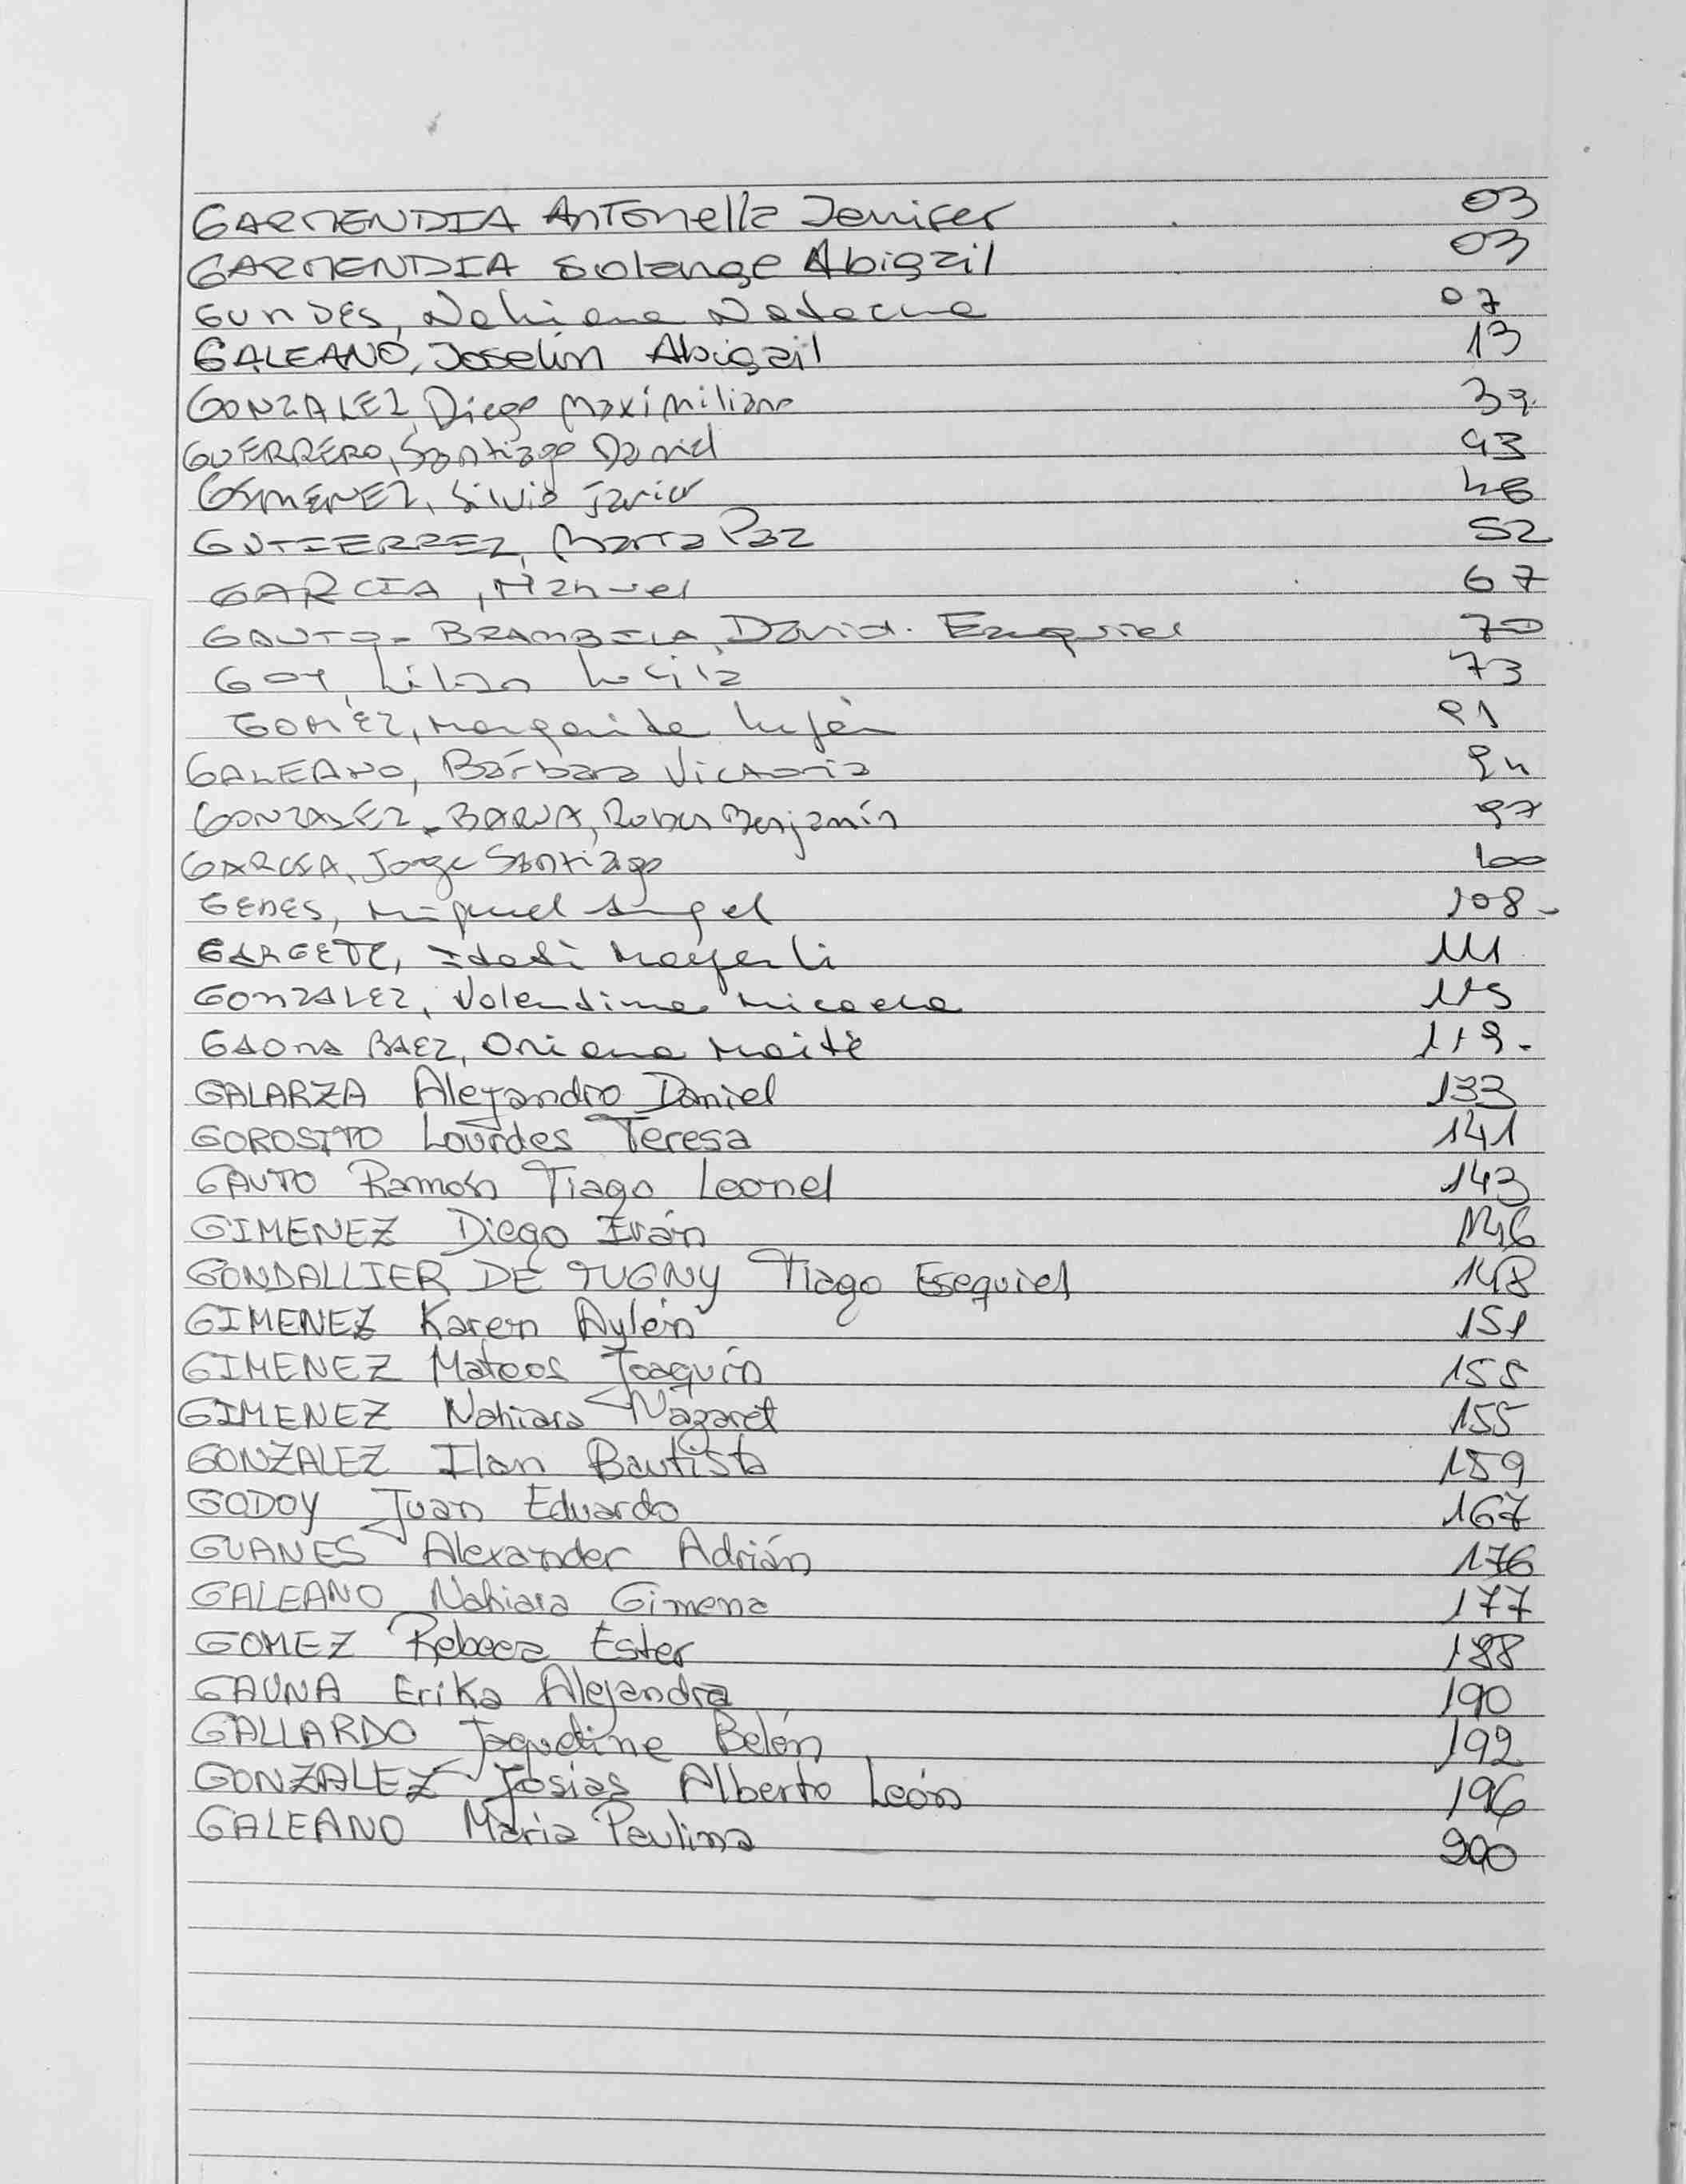 GARMENDIA Antonella Jenifer 03
GARMENDIA Solange Abigail 03
GUNDES, Nahiana 07
GALEANO, Joselin Abigail 13
GONZALEZ, Diego Maximiliano 39
GUERRERO, Santiago Daniel 43
GIMENEZ, Silvio Javier 46
GUTIERREZ, María Paz 52
GARCIA, Manuel 67
GAUTO - BRAMBILA, David. Ezequiel 70
GOY, Lilian Lucila 73
GOMEZ, Margarita Luján 91
GALEANO, Bárbara Victoria 94
GONZALEZ - BARUA, Benjamín 97
GARCIA, Jorge Santiago 100
GEDES, Miguel Angel 108-
Mayerli 111
GONZALEZ, Valentina Micaela 115
GAONA BAEZ, Oriana Maité 119-
GALARZA Alejandro Daniel 133
GOROSITO Lourdes Teresa 141
GAUTO Ramón Tiago Leonel 143
GIMENEZ Diego Iván 146
GONDALLIER DE TUGNY Tiago Esequiel 148
GIMENEZ Karen Aylén 151
GIMENEZ Mateos Joaquín 155
GIMENEZ Nahiara Nazaret 155
GONZALEZ Ilan Bautista 159
GODOY Juan Eduardo 167
GUANES Alexander Adrián 176
GALEANO Nahiara Gimena 177
GOMEZ Rebeca Ester 188
GAUNA Erika Alejandra 190
GALLARDO Jaqueline Belén 192
GONZALEZ Josias Alberto León 196
GALEANO María Paulina 200